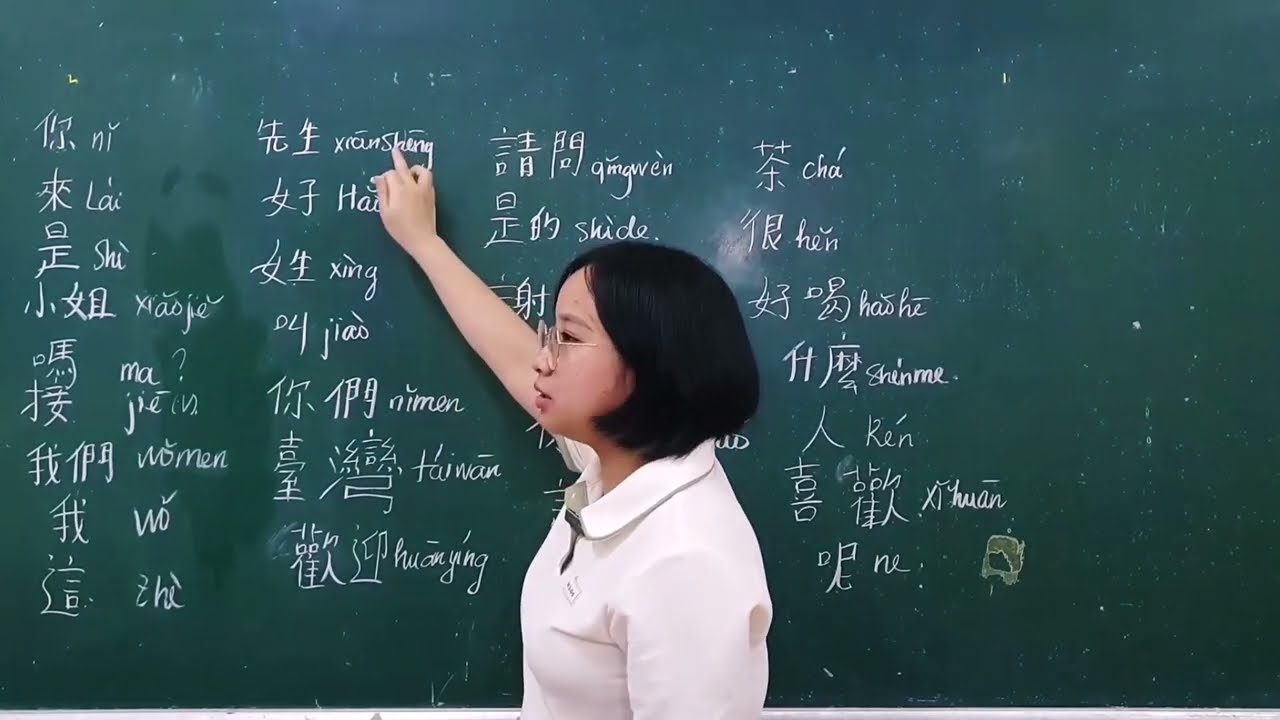 你 nǐ
來 Lái
是 Shì
小姐 xiǎojiě
嗎 ma ?
接 jiē
我們 wǒmen
我 wǒ
這 zhè
先生 xiānshēng
好
姓 xìng
叫 jiào
你們 nǐmen
臺灣 táiwān
歡迎 huānyíng
請問 qǐngwèn
是的 shìde.
茶 chá
很 hěn
好喝 hǎohē
什麼 shénme.
人 Rén
喜歡 xǐhuān
呢 ne